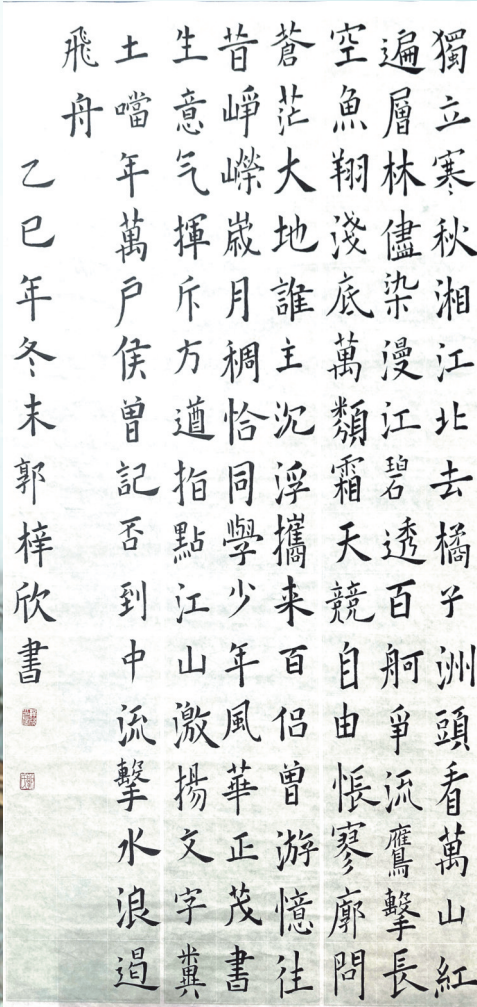 獨立寒秋湘江北去橘子洲頭看萬山紅
遍層林儘染漫江碧透百舸爭流鷹擊長
空魚翔淺底萬類霜天競自由悵寥廓問
蒼茫大地誰主沉浮攜来百侣曾游憶往
昔崢嶸嵗月稠恰同學少年風華正茂書
生意气揮斥方遒指點江山激揚文字糞
土噹年萬户侯曾記否到中流擊水浪遏
飛舟
乙巳年冬末郭梓欣書